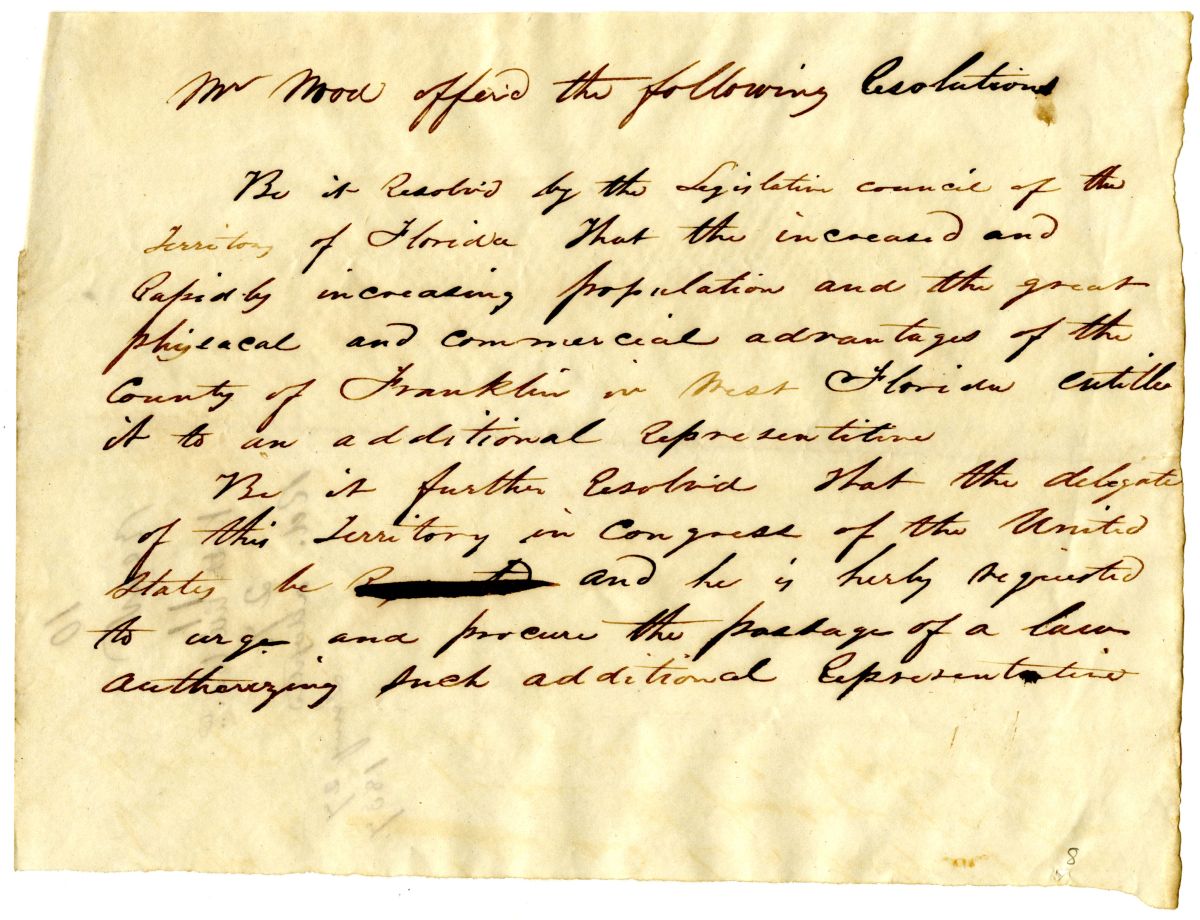 Mr Wood offerd the following Resolutions
Be it Resolvd by the Legislative council of the
Territory of Florida That the increased and
Rapidly increasing population and the great
phiseacal and commercial advantages of the
County of Franklin in West Florida entitle
it to an additional Representitive
Be it further Resolvid That the delegate
of this Territory in Congress of the United
States be and he is herby requested
to urge and procure the passage of a law
Autherizing such additional Representative
8